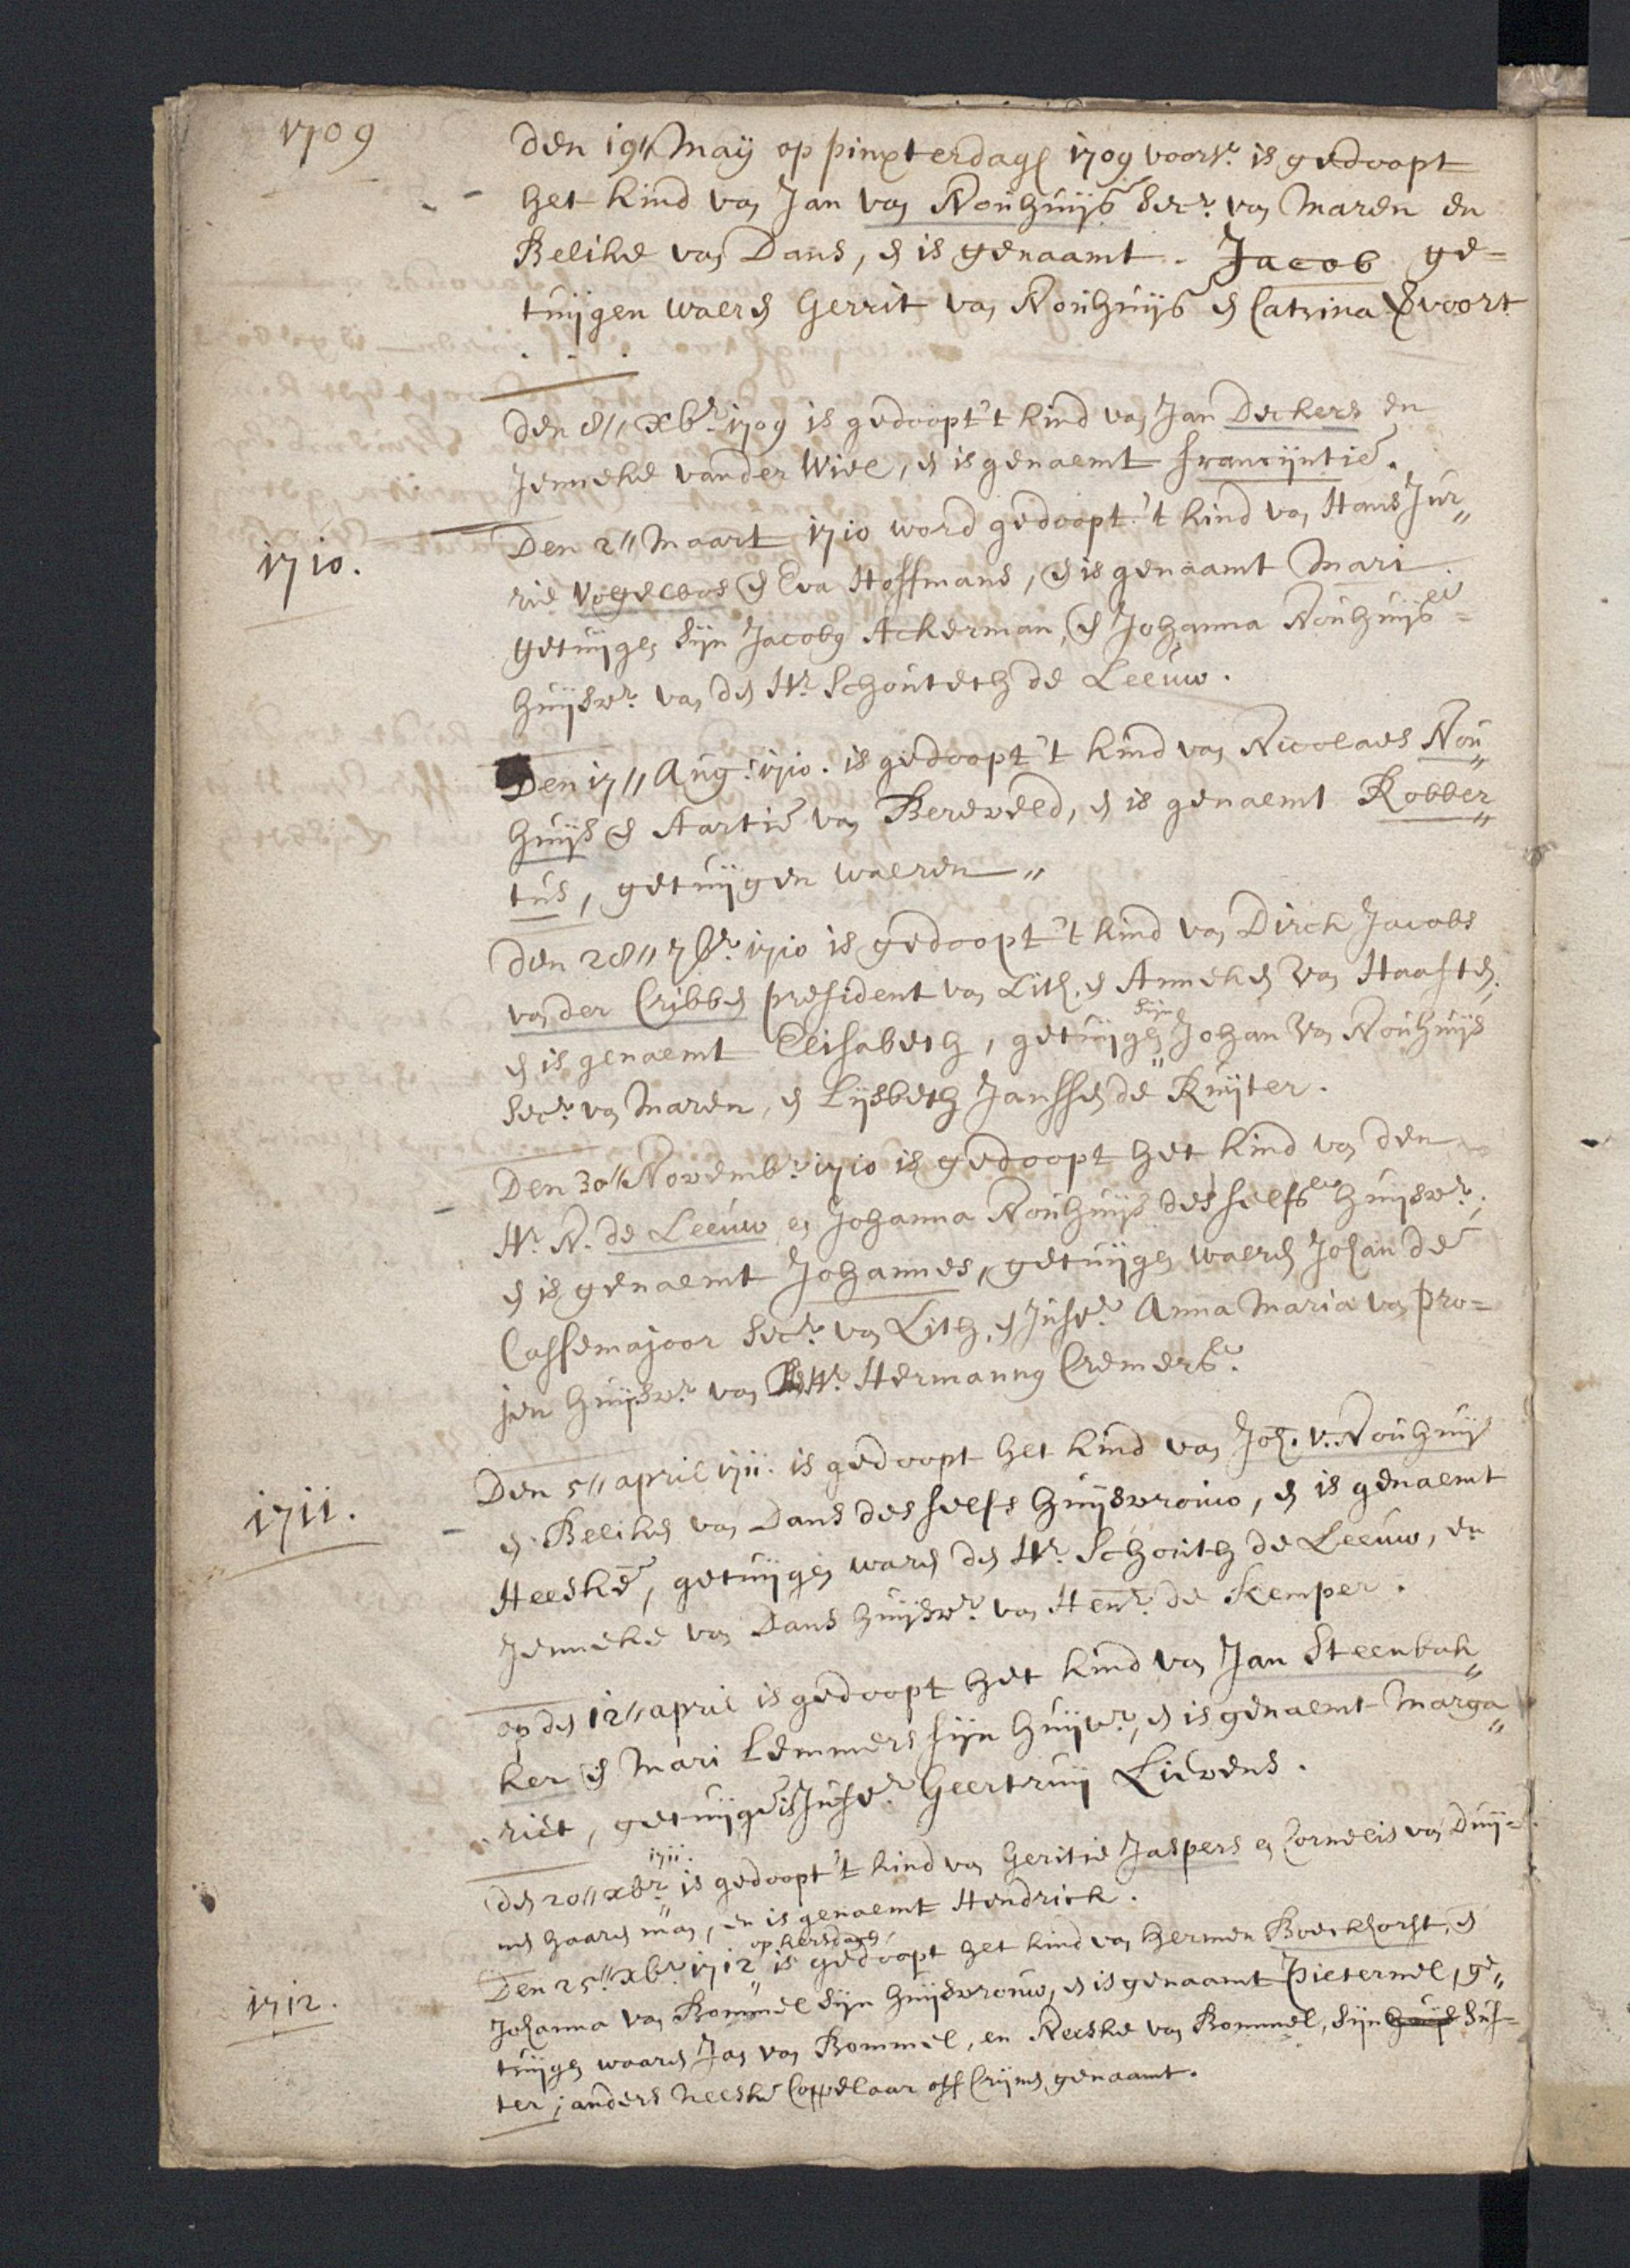 1709
den 19 // Maij op pinxterdagh 1709 voorsr. is gedoopt
het kind van Jan van Nouhuijs Secr. van Maren en
Belike van Dans, en is genaamt. Jacob ge=
tuijgen waeren Gerrit van Nouhuijs en Catrina voorst
. . .
den 8 // Xbr. 1709 is gedoopt 't kind van Jan Deckers en
Jenneke vander Wiel, en is genaemt francijntie.
1710.
Den 2 // Maart 1710 word gedoopt 't kind van Hans Jur„
rie Vogelbos en Eva Hoffmans, en is genaamt Mari
getuijgen sijn Jacobus Ackerman, en Johanna Nouhuijs=
huijsvr. van den Hr. Schouteth de Leeuw.
Den 17 // Aug. 1710. is gedoopt 't kind van Nicolaes Nou„
huijs en Aartie van Bereveld, en is genaemt Robber„
tus, getuijgen waeren„
den 28 // 7br. 1710 is gedoopt 't kind van Dirck Jacobs
van der Cribben president van Lith. en Anneken van Haaften,
en is genaemt Elisabeth, getuijgen sijn Johan van Nouhuijs
Secr. van Maren, en Lijsbeth Janssen de Ruijter.
Den 30 // Novembr. 1710 is gedoopt het kind van den
Hr. N. de Leeuw en Johanna Nouhuijs desselfs huijsvr.;
en is genaemt Johannes, getuijgen waeren Johan de
Cassemajoor Secr. van Lith, en Jufvr. Anna Maria van pro=
jen huijsvr. van Hr. Hermannus Cremers.
1711.
Den 5 // april 1711. is gedoopt het kind van Joh. v. Nouhuijs
en Beliken van Dans desselfs huijsvrouw, en is genaemt
Heeske, getuijgen waren den Hr. Schouth de Leeuw, en
Jenneke van Dans huijsvr. van Henr. de Kemper.
op den 12 // april is gedoopt het kind van Jan Steenbak„
ker en Mari Lemmers sijn huijsvr., en is genaemt Marga„
riet, getuijge is Jufvr. Geertruij Lievens.
den 20 // xbr. 1711. is gedoopt 't kind van Geritie Jaspers en Cornelis van Duij=
nen haaren man, en is genaemt Hendrick.
1712.
Den 25 // Xbr. 1712 op kersdagh is gedoopt het kind van Hermen Boeckhorst, en
Johanna van Bommel sijn huijsvrouw, en is genaamt Pieternel, ge„
tuijgen waaren Jan van Bommel, en Neeske van Bommel, sijn huijs sus=
ter; anders Neeske Cappelaar off Crijnen genaamt.